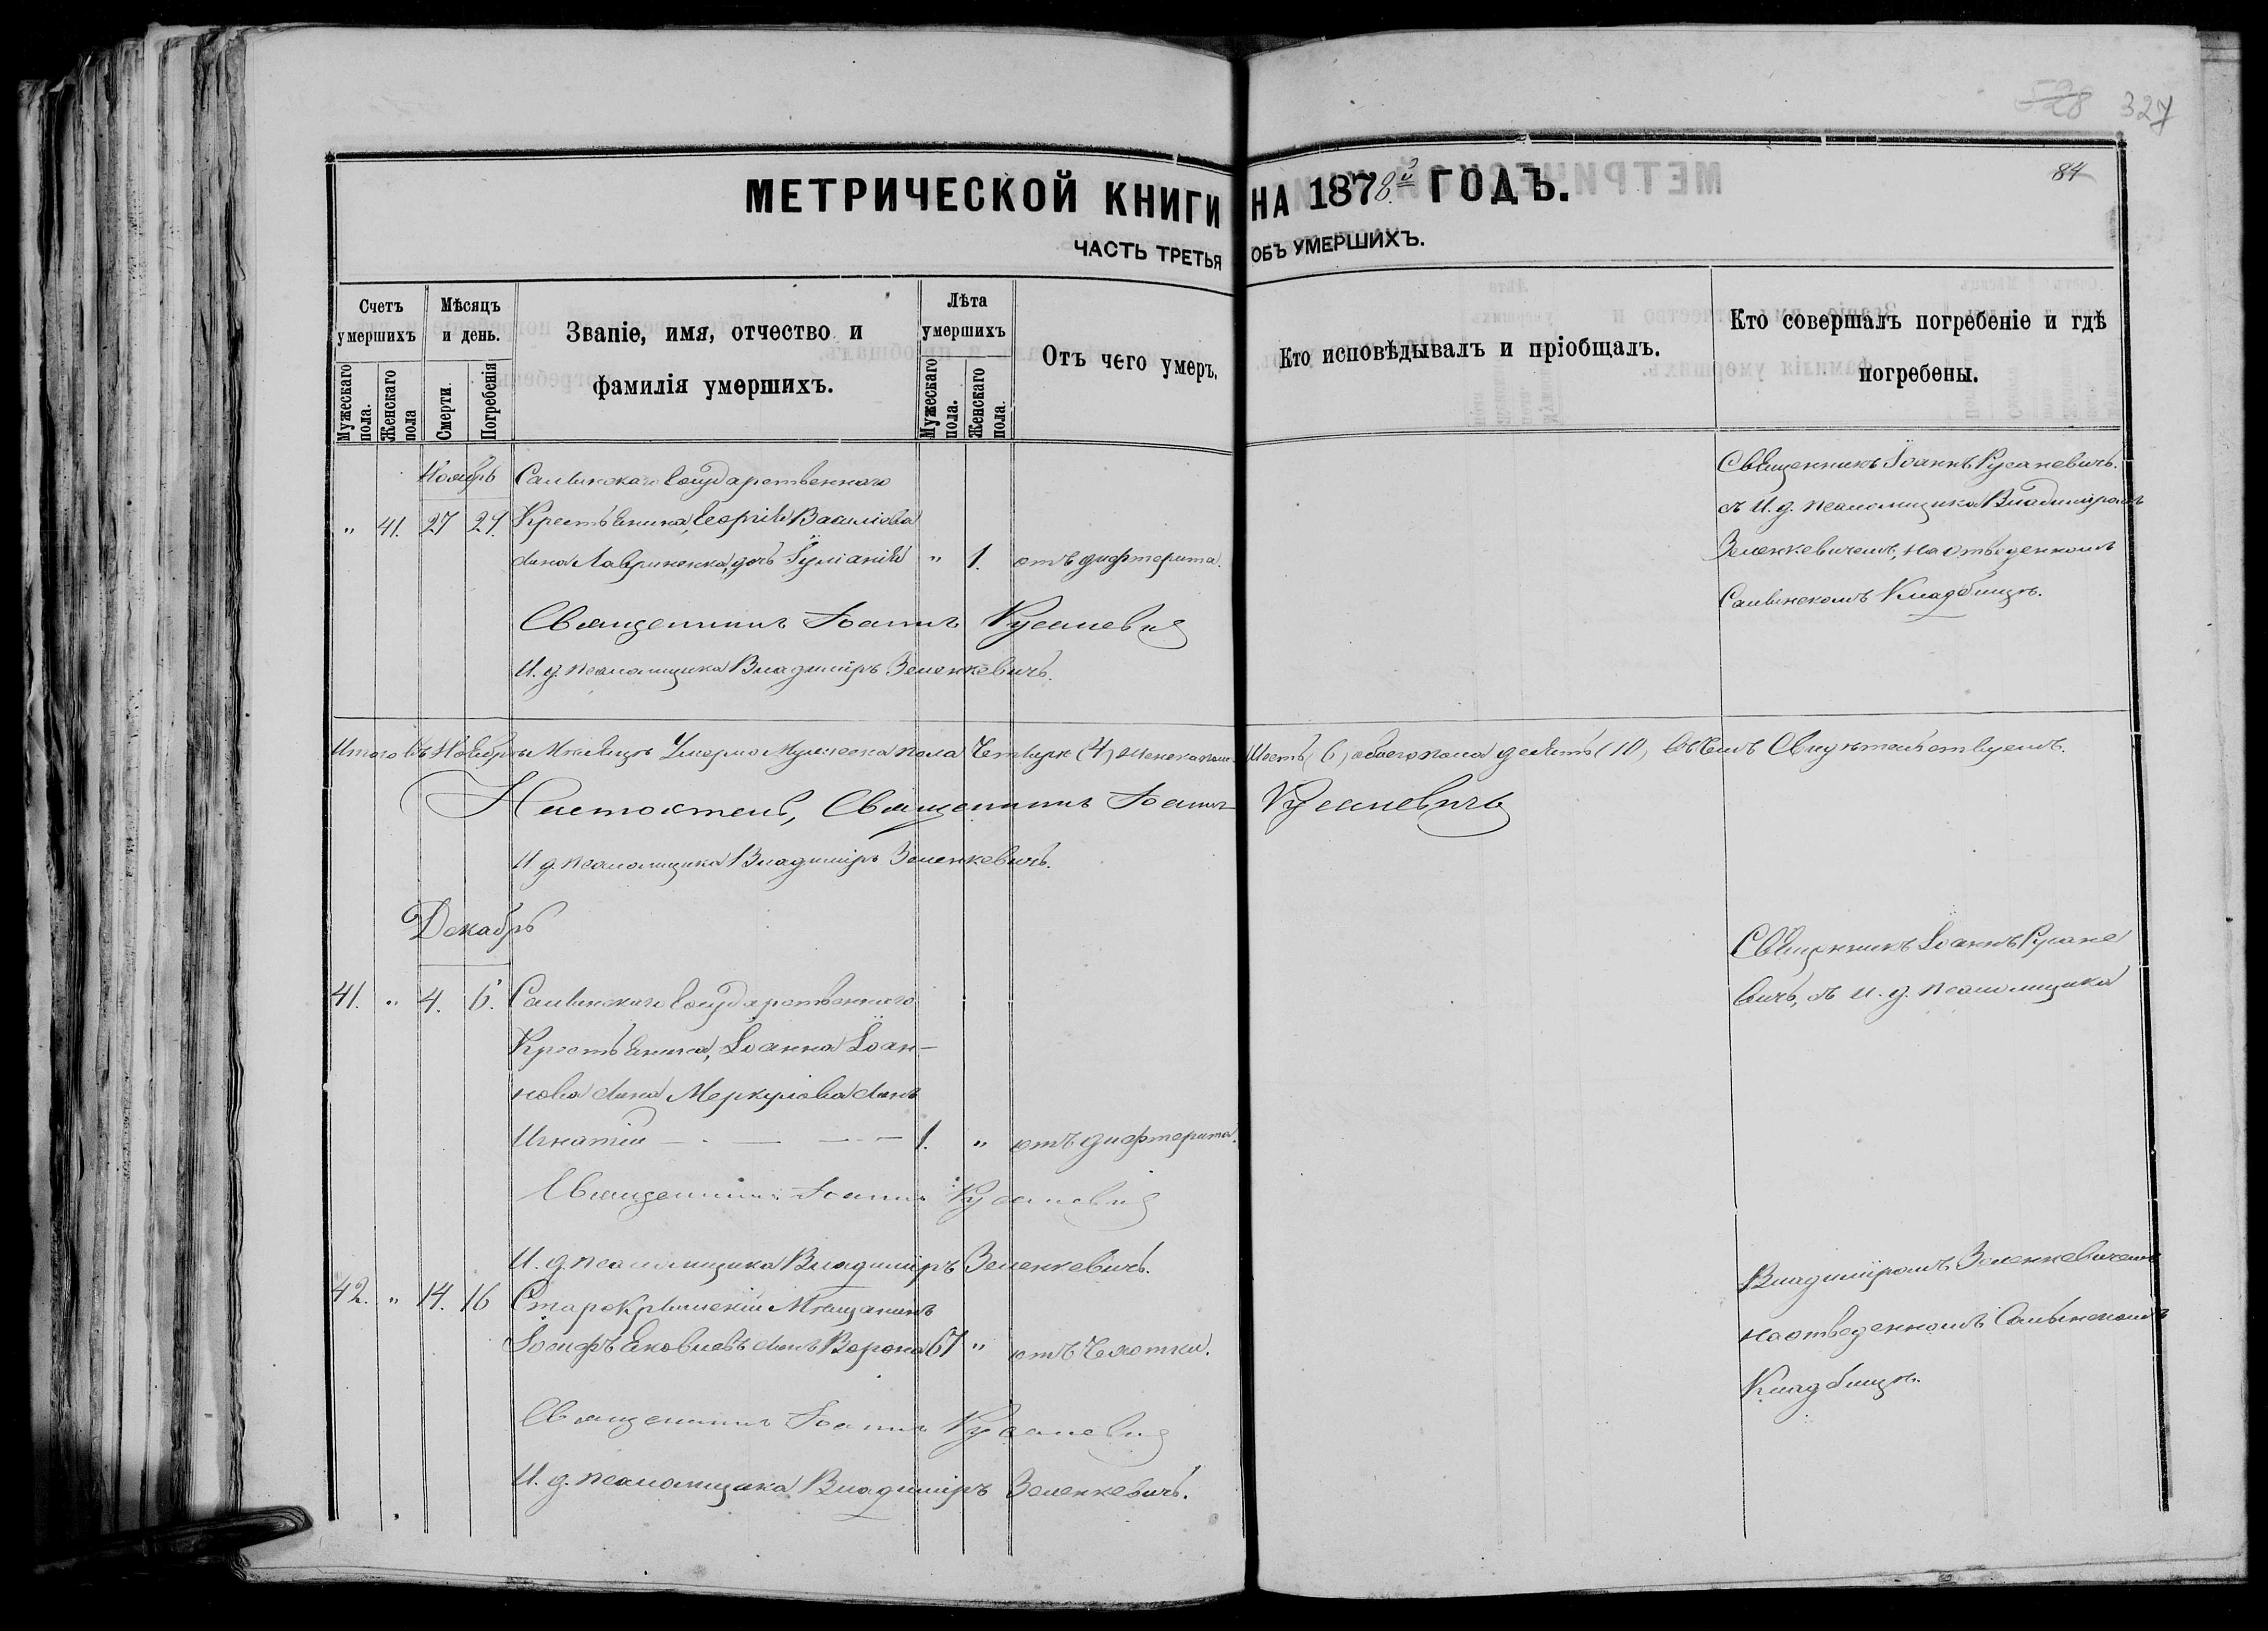 528 327
84
МЕТРИЧЕСКОЙ КНИГИ НА 1878й ГОДЪ.
ЧАСТЬ ТРЕТЬЯ ОБЪ УМЕРШИХЪ.
Счетъ умершихъ
Мужескаго пола.
Женскаго пола
Мѣсяцъ и день.
Смерти.
Погребенія
Званіе, имя, отчество и
фамилія умершихъ.
Лѣта умершихъ
Мужескаго пола.
Женскаго пола.
Отъ чего умеръ.
Кто исповѣдывалъ и пріобщалъ.
Кто совершалъ погребеніе и гдѣ
погребены.
Ноябрь Салынскаго Государственнаго
" 41. 27 29. Крестьянина, Георгія Василіева
сына Лавриненка, дочь Іуліанія " 1. отъ дифтерита.
Священникъ Іоаннъ Русаневичъ
И. д. псаломщика Владиміръ Зеленкевичъ.
Священникъ Іоаннъ Русаневичъ.
съ И. д. псаломщика Владиміромъ
Зеленкевичемъ, на отведенномъ
Салынскомъ Кладбищѣ.
Итого въ Ноябрѣ Мѣсяцѣ Умерло Мужеска пола Четыре (4) Женска пола Шесть (6) обоего пола десять (10), въ чемъ Свидѣтельствуемъ.
Настоятель, Священникъ Іоаннъ Русаневичъ
И д. псаломщика Владиміръ Зеленкевичъ.
Декабрь
41. " 4. 6. Салынскаго Государственнаго
Крестьянина, Іоанна Іоан-
нова сына Меркулова сынъ
Игнатій 1. " отъ дифтерита.
Священникъ Іоаннъ Русаневичъ
И. д. псаломщика Владиміръ Зеленкевичъ.
42. " 14. 16 Старокрымскій Мѣщанинъ
Іосифъ Яковлевъ сынъ Ворона 67 " отъ Чахотки.
Священникъ Іоаннъ Русаневичъ
И. д. псаломщика Владиміръ Зеленкевичъ.
Священникъ Іоаннъ Русане
вичъ, съ и. д. псаломщика
Владиміромъ Зеленкевичемъ
на отведенномъ Салынскомъ
Кладбищѣ.